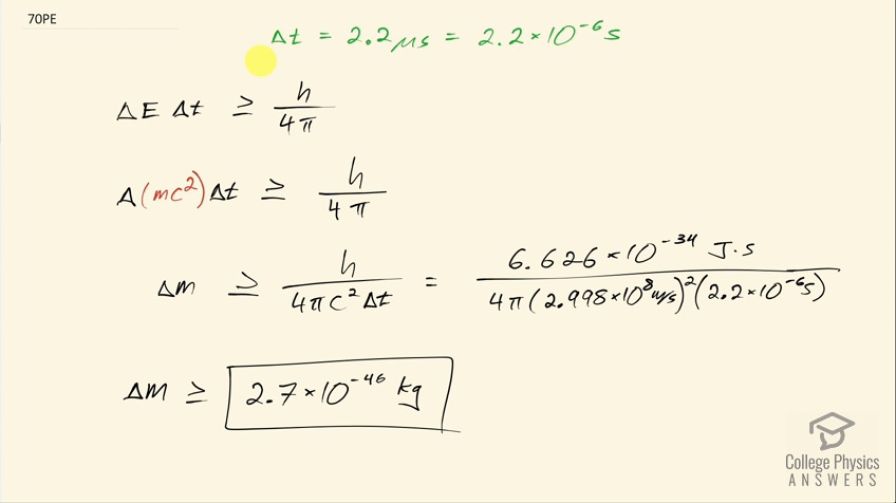 70PE
Δt = 2.2 μs = 2.2 × 10⁻⁶ s
ΔE Δt ≥ h / 4π
Δ(mc²)Δt ≥ h / 4π
Δm ≥ h / 4πc²Δt = 6.626 × 10⁻³⁴ J·s / 4π(2.998 × 10⁸ m/s)²(2.2 × 10⁻⁶ s)
Δm ≥ 2.7 × 10⁻⁴⁶ kg
College Physics
ANSWERS